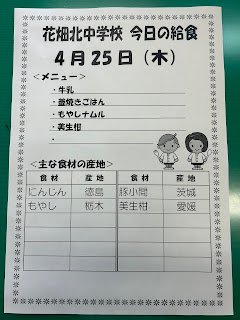 花畑北中学校 今日の給食
4月25日（木）
＜メニュー＞
・牛乳
・釜焼きごはん
・もやしナムル
・美生柑
・
＜主な食材の産地＞
食材 産地 食材 産地
にんじん 徳島 豚小間 茨城
もやし 栃木 美生柑 愛媛